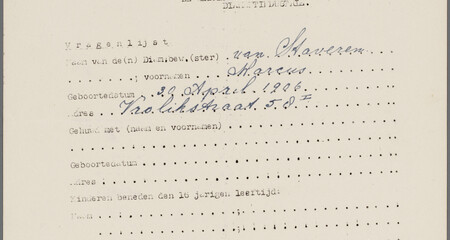 Vragenlijst
Naam van de(n) Diam.bew.(ster) van Staveren
; voornamen Marcus
Geboortedatum 29 April 1906
Adres
Gehuwd met (naam en voornamen)
Geboortedatum
Adres :
Kinderen beneden den 16 jarigen leeftijd:
Naam ;
;